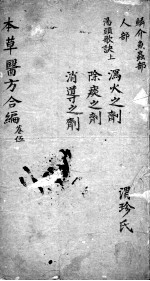 鱗介魚蟲部
人部
湯頭歌訣上
瀉火之劑
除痰之劑
消導之劑
本草醫方合編
卷伍
珍氏